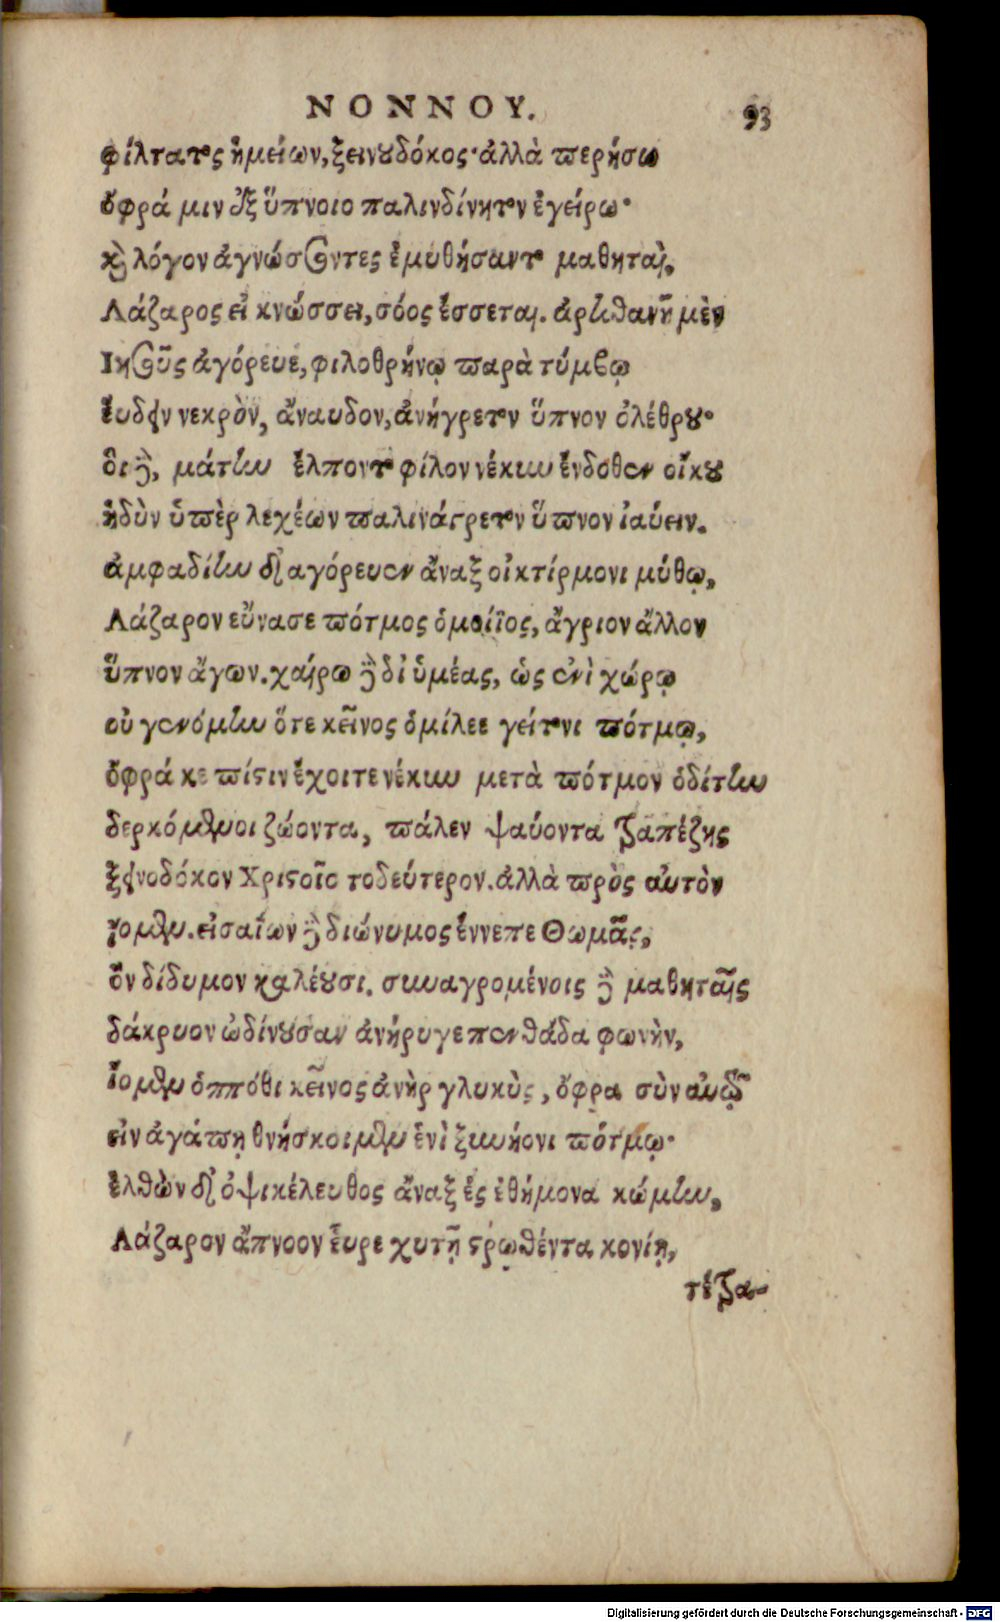 ΝΟΝΝΟΥ. 93
φίλτατος ἡμείων, ξεινουδόκος· ἀλλὰ περήσω
ὄφρά μιν ἐξ ὕπνοιο παλινδίνητον ἐγείρω·
καὶ λόγον ἀγνώσσοντες ἐμυθήσαντο μαθηταί,
Λάζαρος εἰ κνώσσει, σόος ἔσσεται. ἀρτιθανῆ μὲν
Ιησοῦς ἀγόρευε, φιλοθρήνῳ παρὰ τύμβῳ
εὕδειν νεκρὸν, ἄναυδον, ἀνήγρετον ὕπνον ὀλέθρου·
οἱ δὲ, μάτην ἔλποντο φίλον νέκυν ἔνδοθεν οἴκου
ἡδὺν ὑπὲρ λεχέων παλινάγρετον ὕπνον ἰαύειν.
ἀμφαδίην δ' ἀγόρευεν ἄναξ οἰκτίρμονι μύθῳ,
Λάζαρον εὔνασε πότμος ὁμοίϊος, ἄγριον ἄλλον
ὕπνον ἄγων. χαίρω δὲ δι' ὑμέας, ὡς ἐνὶ χώρῳ
οὐ γενόμην ὅτε κεῖνος ὁμίλεε γείτονι πότμῳ,
ὄφρά κε πίστιν ἔχοιτε νέκυν μετὰ πότμον ὁδίτην
δερκόμενοι ζώοντα, πάλεν ψαύοντα τραπέζης
ξεινοδόκον Χριστοῖο τοδεύτερον. ἀλλὰ πρὸς αὐτὸν
ἴομεν. εἰσαΐων δὲ διώνυμος ἔννεπε Θωμᾶς,
ὃν δίδυμον καλέουσι. συναγρομένοις δὲ μαθηταῖς
δάκρυον ὠδίνουσαν ἀνήρυγε πενθάδα φωνὴν,
ἴομεν ὁππόθι κεῖνος ἀνὴρ γλυκὺς, ὄφρα σὺν αὐτῷ
εἰν ἀγάπῃ θνήσκοιμεν ἑνὶ ξυνήονι πότμῳ·
ἐλθὼν δ' ὀψικέλευθος ἄναξ ἐς ἐθήμονα κώμην,
Λάζαρον ἄπνοον εὗρε χυτῇ στρωθέντα κονίῃ,
τέτρα-
Digitalisierung gefördert durch die Deutsche Forschungsgemeinschaft - DFG